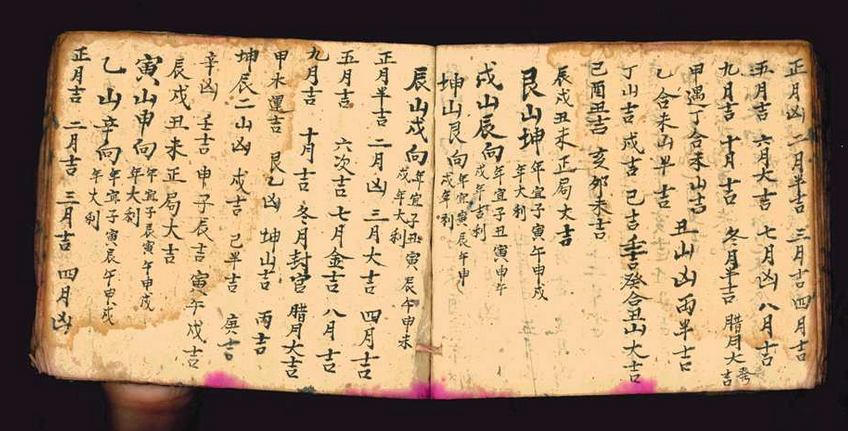 正月凶 二月半吉 三月吉 四月吉
五月吉 六月大吉 七月凶 八月吉
九月吉 十月吉 冬月半吉 腊月大吉
甲遇丁合未山吉 丑山凶 丙半吉
乙合未山半吉
丁山吉 戌吉 巳吉 壬吉 癸合丑山大吉
己酉丑吉 亥卯未吉
辰戌丑未正局大吉
艮山坤 年宜子寅午申戌
年大利
戌山辰向 年宜子丑寅申午
戌年吉利
坤山艮向 年宜寅辰午申
戌年利
辰山戌向 年宜子丑寅辰午申未
戌年大利
正月半吉 二月凶 三月大吉 四月吉
五月吉 六次吉 七月金吉 八月吉
九月吉 十月吉 冬月封官 腊月大吉
甲水運吉 艮乙凶 坤山吉 丙吉
坤辰二山凶 戌吉 己半吉 庚吉
辛凶 壬吉 申子辰吉 寅午戌吉
辰戌丑未正局大吉
寅山申向 年宜子辰寅午申戌
年大利
乙山辛向 年宜子寅辰午申戌
年大利
正月吉 二月吉 三月吉 四月凶